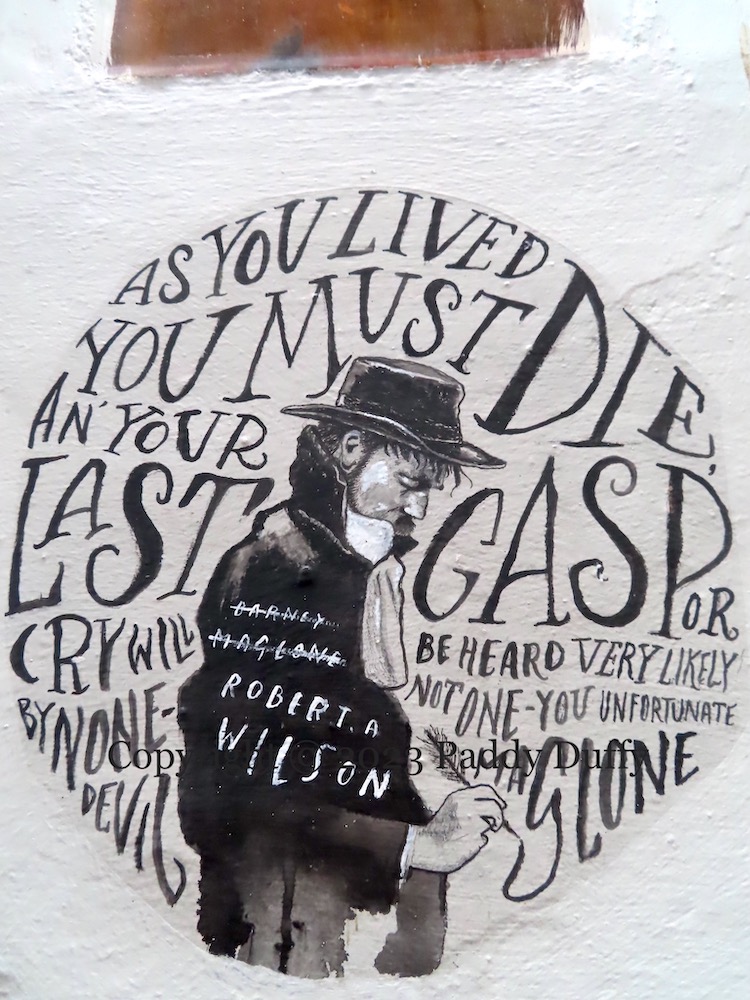 AS YOU LIVED
YOU MUST DIE,
AN' YOUR
LAST GASP OR
CRY WILL BE HEARD VERY LIKELY
BY NONE - NOT ONE - YOU UNFORTUNATE
DEVIL MAGLONE
BARNEY
MAGLONE
ROBERT. A
WILSON
Copyright © 2023 Paddy Duffy